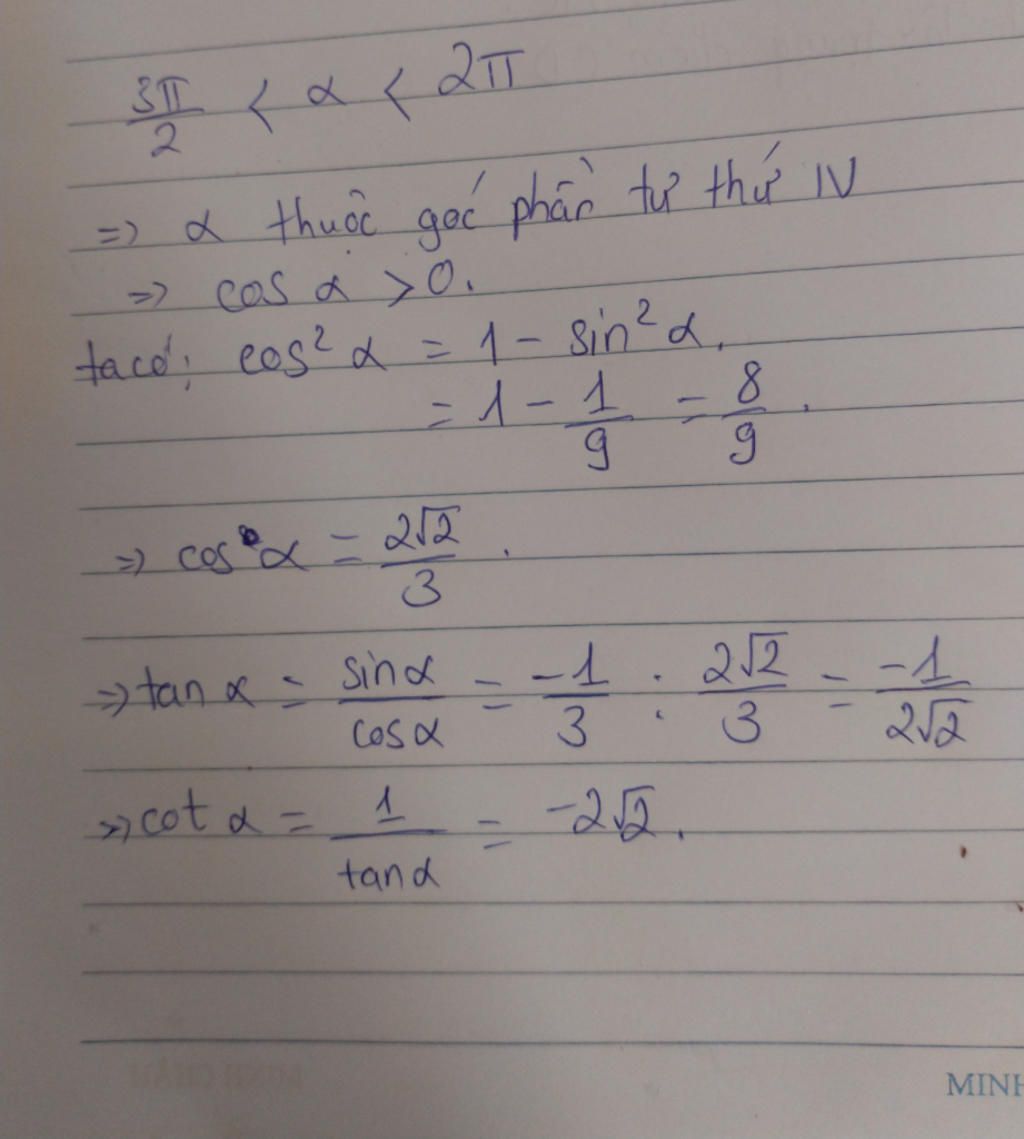 3π/2 < α < 2π
=> α thuộc góc phần tư thứ IV
=> cos α > 0.
ta có: cos² α = 1 - sin² α.
= 1 - 1/9 = 8/9.
=> cos α = 2√2/3.
=> tan α = sin α/cos α = -1/3 : 2√2/3 = -1/2√2
=> cot α = 1/tan α = -2√2.
MINH